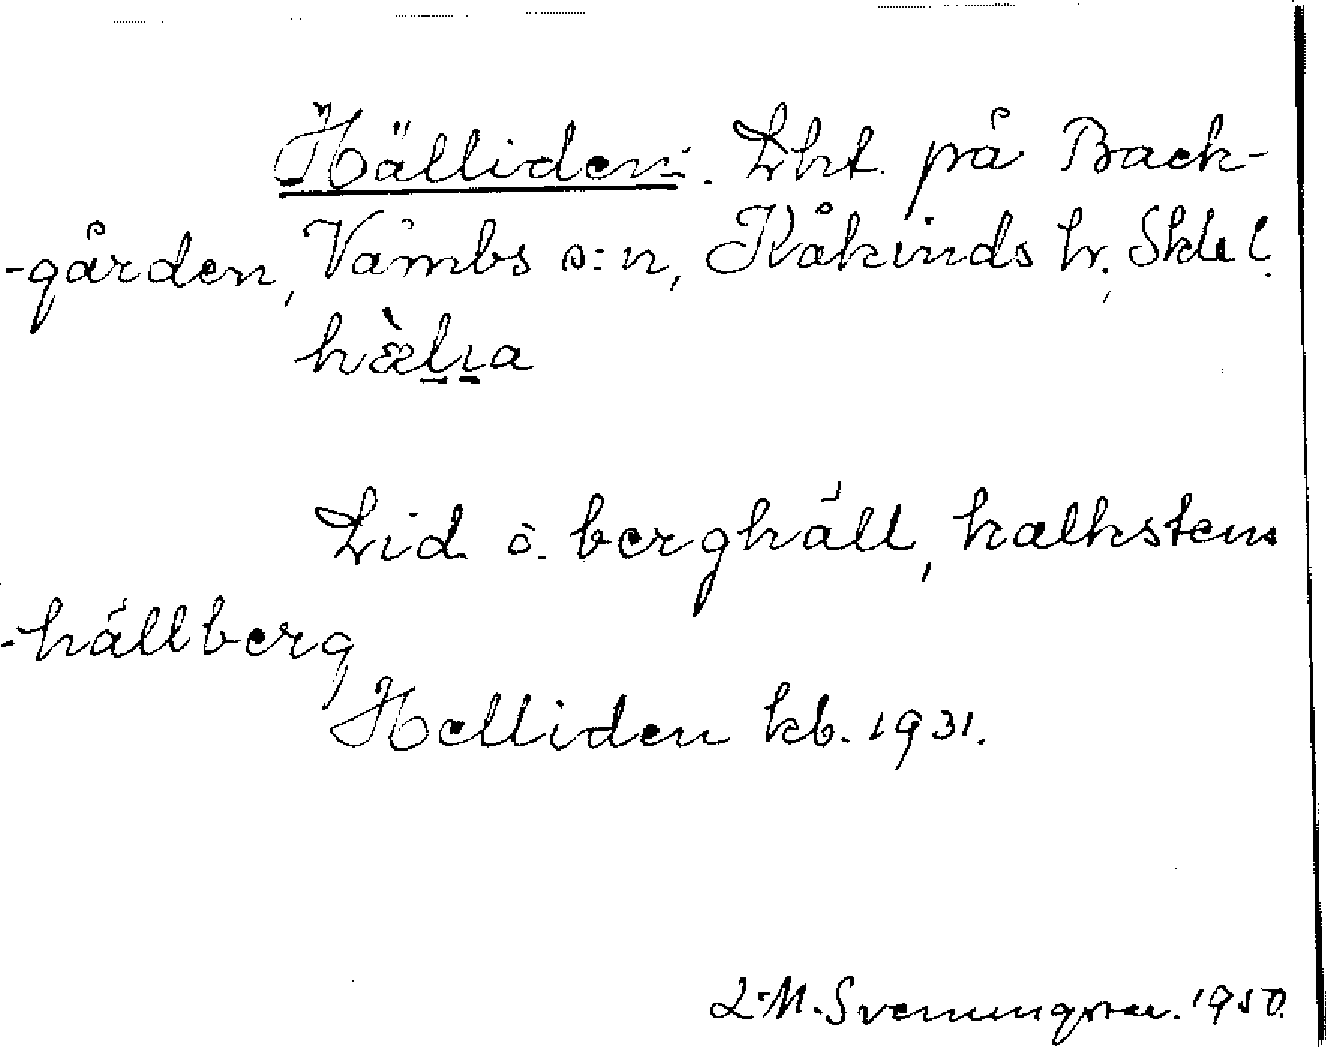 Hälliden. Lht på Back-
-gården, Våmbs s:n, Kåkinds hr, Skbl.
hæ̀lıa
Lid o. berghäll, kalkstens
-hällberg
Helliden kb. 1931.
L-M. Svenungsson. 1950.